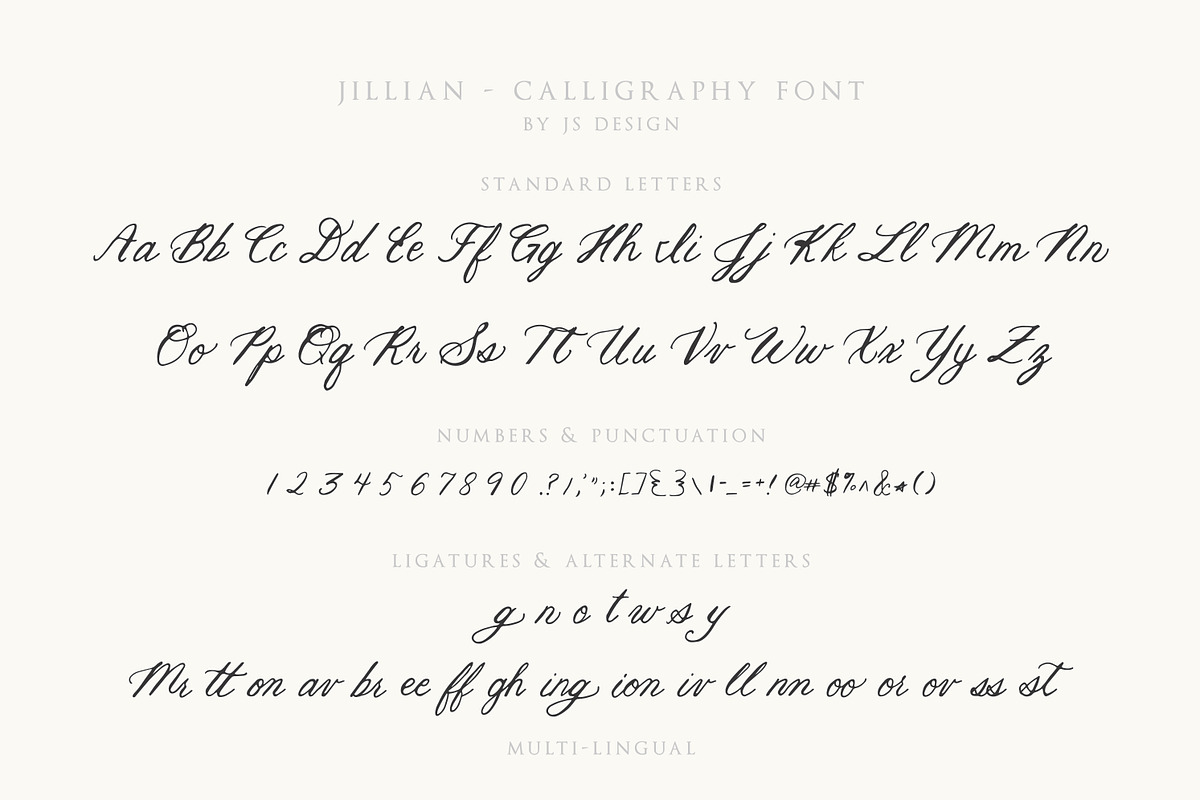 JILLIAN - CALLIGRAPHY FONT
BY JS DESIGN
STANDARD LETTERS
Aa Bb Cc Dd Ee Ff Gg Hh Ii Jj Kk Ll Mm Nn
Oo Pp Qq Rr Ss Tt Uu Vv Ww Xx Yy Zz
NUMBERS & PUNCTUATION
1 2 3 4 5 6 7 8 9 0 .?/,'";:[]{}\|-_=+!@#$%^&*()
LIGATURES & ALTERNATE LETTERS
g n o t w s y
Mr tt on av br ee ff gh ing ion iv ll nn oo or ov ss st
MULTI-LINGUAL